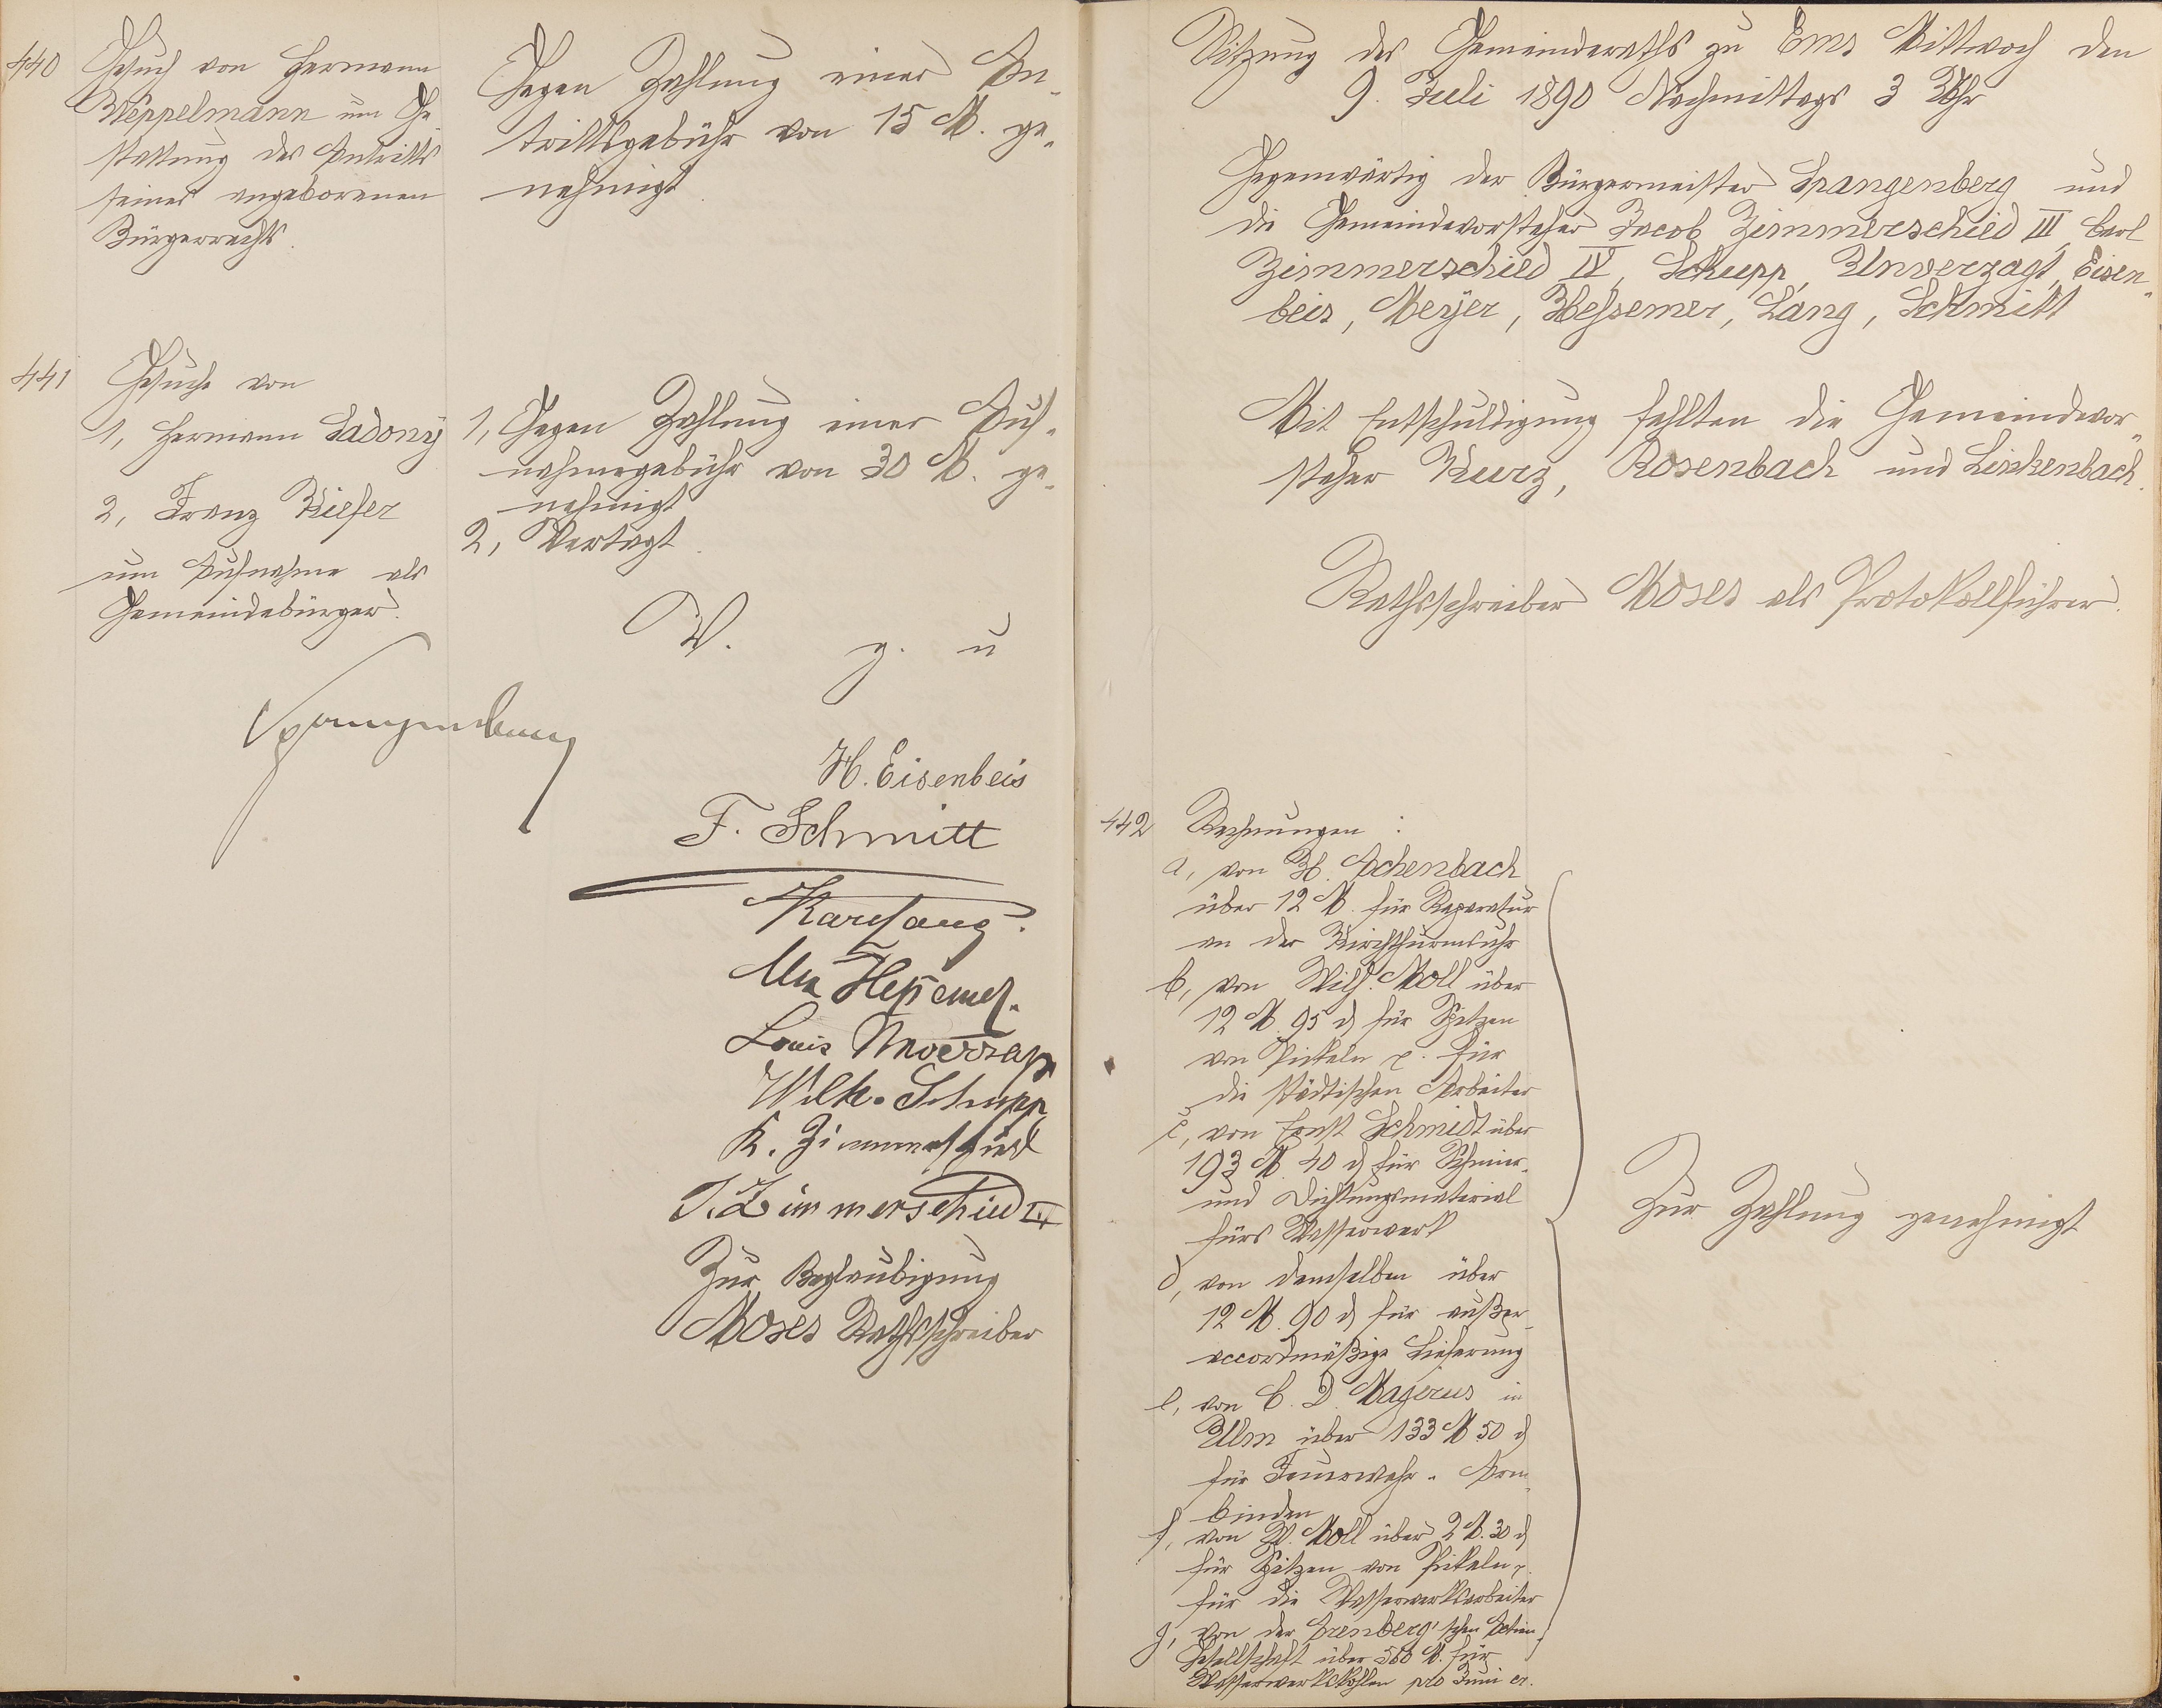 440
Gesuch von Hermann
Weppelmann um Ge
stattung des Antritts
seines angeborenen
Bürgerrechts.
Gegen Zahlung einer An-
trittsgebühr von 15 M. ge-
nehmigt.
441
Gesuche von
1, Hermann Ladony
2, Franz Kiefer
um Aufnahme als
Gemeindebürger.
1, Gegen Zahlung einer Auf-
nahmegebühr von 30 M. ge-
nehmigt
2, Vertagt.
V. g. u
Spangenberg
H. Eisenbeis
F. Schmitt
Karl Lang.
Hessemer.
Louis Unverzagt
Wilh. Schupp
K. Zimmerschied
J. Zimmerschied III
Zur Beglaubigung
Moses Rathsschreiber
Sitzung des Gemeinderaths zu Ems Mittwoch den
9. Juli 1890 Nachmittags 3 Uhr
Gegenwärtig der Bürgermeister Spangenberg und
die Gemeindevorsteher Jacob Zimmerschied III, Carl
Zimmerschied IV, Schupp, Unverzagt, Eisen-
beis, Meyer, Hessemer, Lang, Schmitt
Mit Entschuldigung fehlten die Gemeindevor-
steher Kurz, Rosenbach und Linkenbach.
Rathsschreiber Moses als Protokollführer.
442
Rechnungen :
a, von H. Achenbach
über 12 M. für Reparatur
an der Kirchthurmsuhr
b, von Wilh. Moll über
12 M. 95 d für Spitzen
von Pickeln p. für
die städtischen Arbeiter
c, von Ernst Schmidt über
193 M. 40 d für Schmier-
und Dichtungsmaterial
fürs Wasserwerk
d, von demselben über
12 M. 90 d für außer-
accordmäßige Lieferung
e, von C. D. Magirus in
Ulm über 133 M 50 d
für Feuerwehr- Arm-
binden
f, von W. Moll über 2 M. 30 d
für Spitzen von Pickeln p.
für die Wasserwerksarbeiter
g, von der Arenberg'schen Actien-
Gesellschaft über 560 M. für
Wasserwerkskohlen pro Juni cr.
Zur Zahlung genehmigt